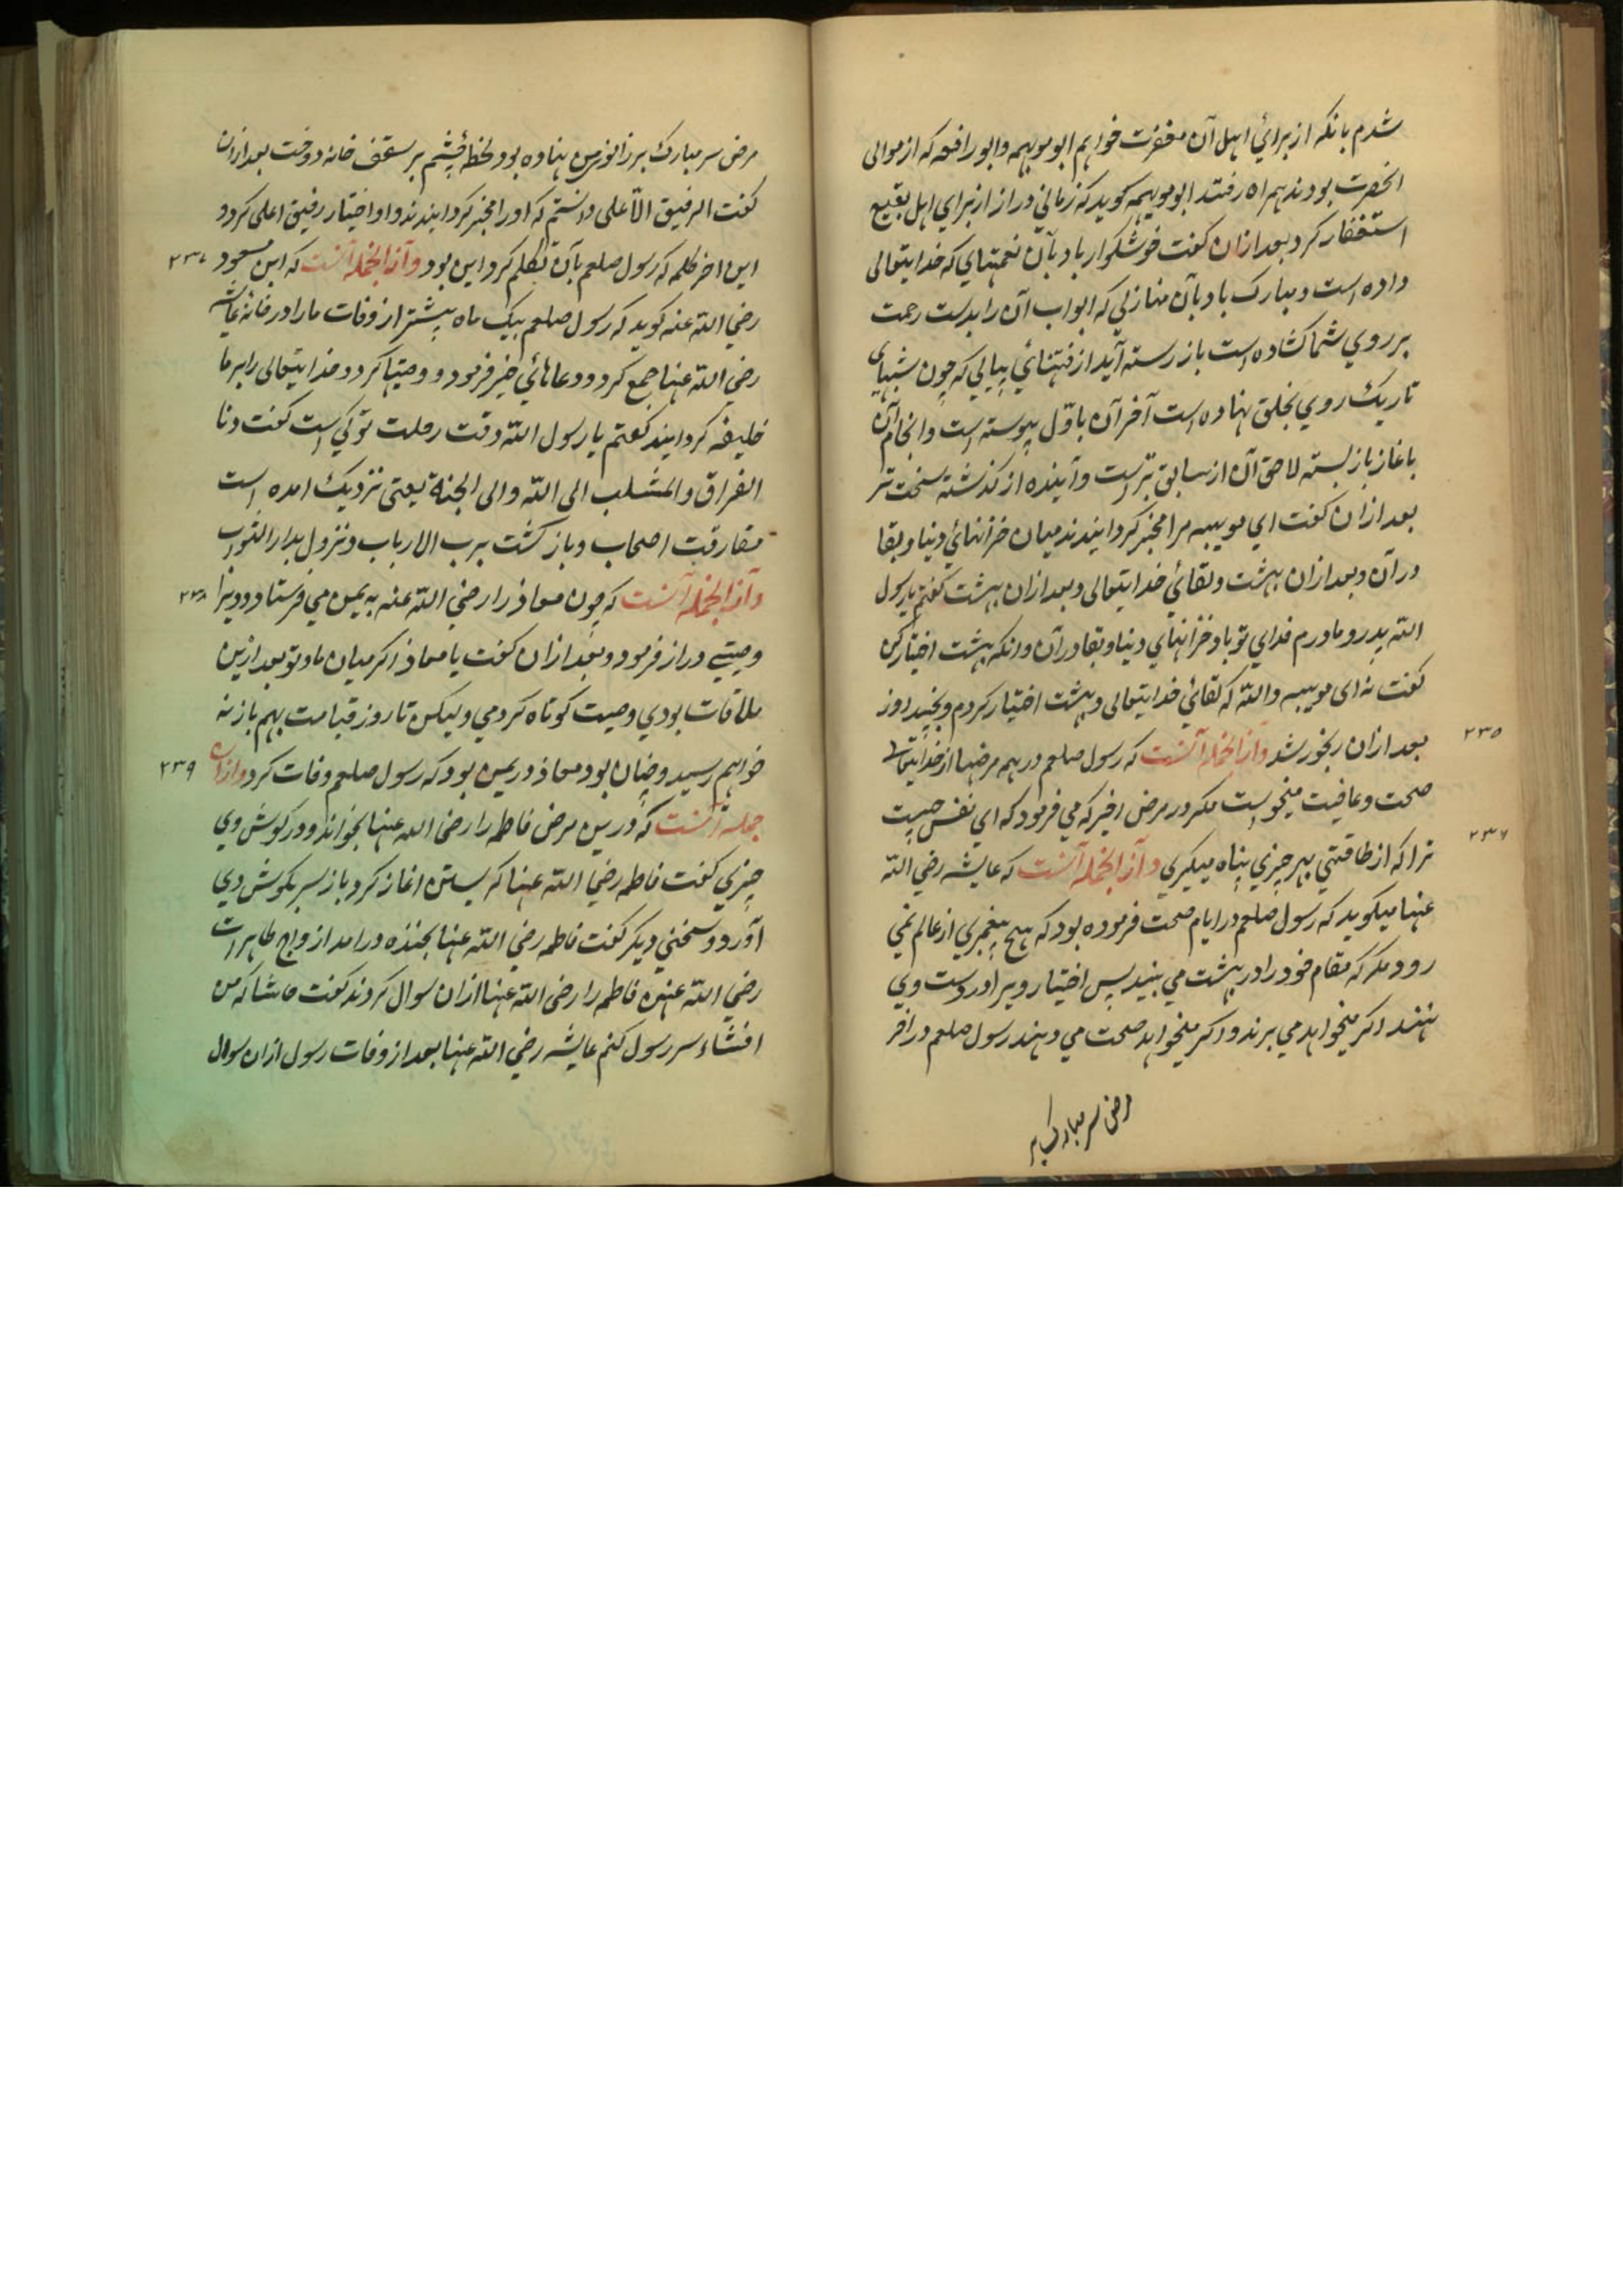 شدم بانکه از برائي اهل آن مغفرت خواهم ابو مویهبه وابو رافعه که از موالی
انحضرت بودند همراه رفتند ابو مویهبه کوید که زماني دراز از برای اهل بقیع
استغفار کرد بعد ازان کفت خوشکوار باد بآن نعمتهاي که خدایتعالی
داده است و مبارک باد بآن منازلي که ابواب آن را بدست رحمت
بر روي شما کشاده است باز رسته آید از فتنهائي پیاپي که چون شبهاي
تاریک روي بخلق نهاده است آخر آن باوّل پیوسته است وانجام آن
باغاز باز بسته لاحق آن از سابق بتر است وآینده از کذشته سخت تر
بعد ازان کفت اي مویهبه مرا مخیر کردانیدند میان خزانهائي دنیا وبقا
در آن وبعد ازان بهشت ولقائي خدایتعالی وبعد ازان بهشت کفتم یا رسول
الله پدر و مادرم فداي تو باد خزانهاي دنیا وبقا در آن وانکه بهشت اختیار کن
کفت نه ای مویهبه والله که لقائي خدایتعالی وبهشت اختیار کردم وبچند روز
بعد ازان رنجور شد وازانجمله آنست که رسول صلعم در همه مرضها از خدایتعالی
۲۳۵
صحت وعافیت میخواست مکر در مرض اخیر که می فرمود که اي نفس چیست
ترا که از طاقتي بهر چیزي پناه میکیري وازانجمله آنست که عایشه رضي الله
۲۳۶
عنها میکوید که رسول صلعم در ایام صحت فرموده بود که هیچ پیغمبري از عالم نمي
رود مکر که مقام خود را در بهشت مي بیند پس اختیار ویرا در دست وي
نهند اکر میخواهد مي برند و اکر میخواهد صحت مي دهند رسول صلعم در آخر
مرض سر مبارک بر
مرض سر مبارک بر زانوز من نهاده بود لحظهٔ چشم بر سقف خانه دوخت بعد ازان
کفت الرفیق الاعلی دانستم که اورا مخیر کردانیدند واو اختیار رفیق اعلی کرد و
این اخر کلمه که رسول صلعم بآن تکلم کرد این بود وازانجمله آنست که ابن مسعود
۲۳۷
رضي الله عنه کوید که رسول صلعم بیک ماه پیشتر از وفات مارا در خانه عایشه
رضي الله عنها جمع کرد ودعاهائي خیر فرمود و وصیتها کرد و خدایتعالی را بر ما
خلیفه کردانید کفتم یا رسول الله وقت رحلت تو کي است کفت دنا
الفراق والمنقلب الی الله والی الجنة یعنی نزدیک امده است
مفارقت اصحاب وباز کشت برب الارباب ونزول بدار الثواب
وازانجمله آنست که چون معاذ را رضي الله عنه به یمن مي فرستاد و ویرا
۲۳۸
وصیتي دراز فرمود وبعد ازان کفت یا معاذ اکر میان ما وتو بعد ازین
ملاقات بودي وصیت کوتاه کردمي ولیکن تا روز قیامت بهم باز نه
خواهم رسید وچنان بود معاذ در یمن بود که رسول صلعم وفات کرد وازان
۲۳۹
جمله آنست که درین مرض فاطمه را رضی الله عنها بخواند ودر کوش وي
چیزي کفت فاطمه رضي الله عنها کریستن اغاز کرد باز سر بکوش وي
آورد و سخني دیکر کفت فاطمه رضي الله عنها بخنده درامد ازواج طاهرات
رضي الله عنهن فاطمه را رضی الله عنها ازان سوال کردند کفت حاشا که من
افشاء سر رسول کنم عایشه رضي الله عنها بعد از وفات رسول ازان سوال